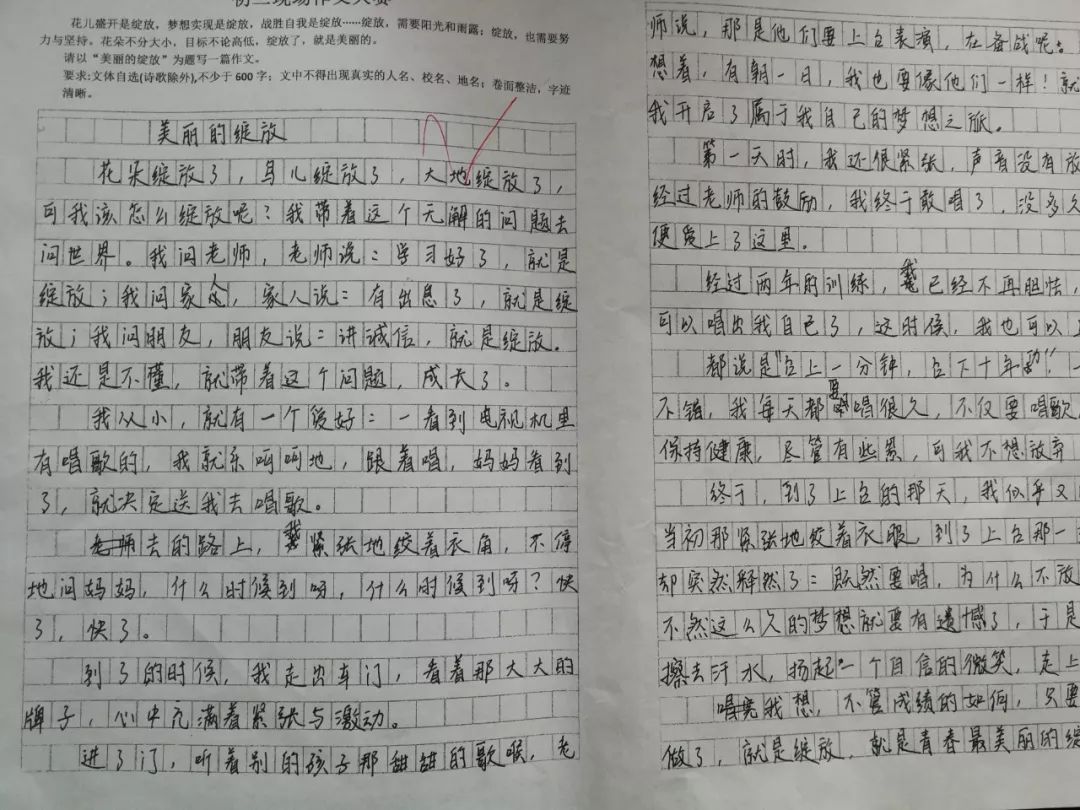 初三现场作文大赛
花儿盛开是绽放，梦想实现是绽放，战胜自我是绽放……绽放，需要阳光和雨露；绽放，也需要努
力与坚持。花朵不分大小，目标不论高低，绽放了，就是美丽的。
请以“美丽的绽放”为题写一篇作文。
要求:文体自选(诗歌除外),不少于 600 字；文中不得出现真实的人名、校名、地名；卷面整洁，字迹
清晰。
美丽的绽放
花朵绽放了，鸟儿绽放了，大地绽放了，
可我该怎么绽放呢？我带着这个无解的问题去
问世界。我问老师，老师说：学习好了，就是
绽放；我问家人，家人说：有出息了，就是绽
放；我问朋友，朋友说：讲诚信，就是绽放。
我还是不懂，就带着这个问题，成长了。
我从小，就有一个爱好：一看到电视机里
有唱歌的，我就乐呵呵地，跟着唱，妈妈看到
了，就决定送我去唱歌。
去的路上，我紧张地绞着衣角，不停
地问妈妈，什么时候到呀，什么时候到呀？快
了，快了。
到了的时候，我走出车门，看着那大大的
牌子，心中充满着紧张与激动。
进了门，听着别的孩子那甜甜的歌喉，老
师说，那是他们要上台表演，在备战呢。
想着，有朝一日，我也要像他们一样！就
我开启了属于我自己的梦想之旅。
第一天时，我还很紧张，声音没有放
经过老师的鼓励，我终于敢唱了，没多久
便爱上了这里。
经过两年的训练，我已经不再胆怯，
可以唱出我自己了，这时候，我也可以上
都说是“台上一分钟，台下十年功”，一
不错，我每天都要唱很久，不仅要唱歌，
保持健康，尽管有些累，可我不想放弃
终于，到了上台的那天，我似乎又
当初那紧张地绞着衣服，到了上台那一
却突然释然了：既然要唱，为什么不放
不然这么久的梦想就要有遗憾了，于是
擦去汗水，扬起一个自信的微笑，走上
唱完我想，不管成绩的如何，只要
做了，就是绽放，就是青春最美丽的绽